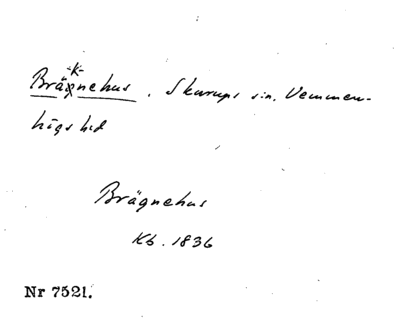 Bräknehus. Skurups sn. Vemmen-
högs hd
Brägnehus
Kb. 1836
Nr 7521.